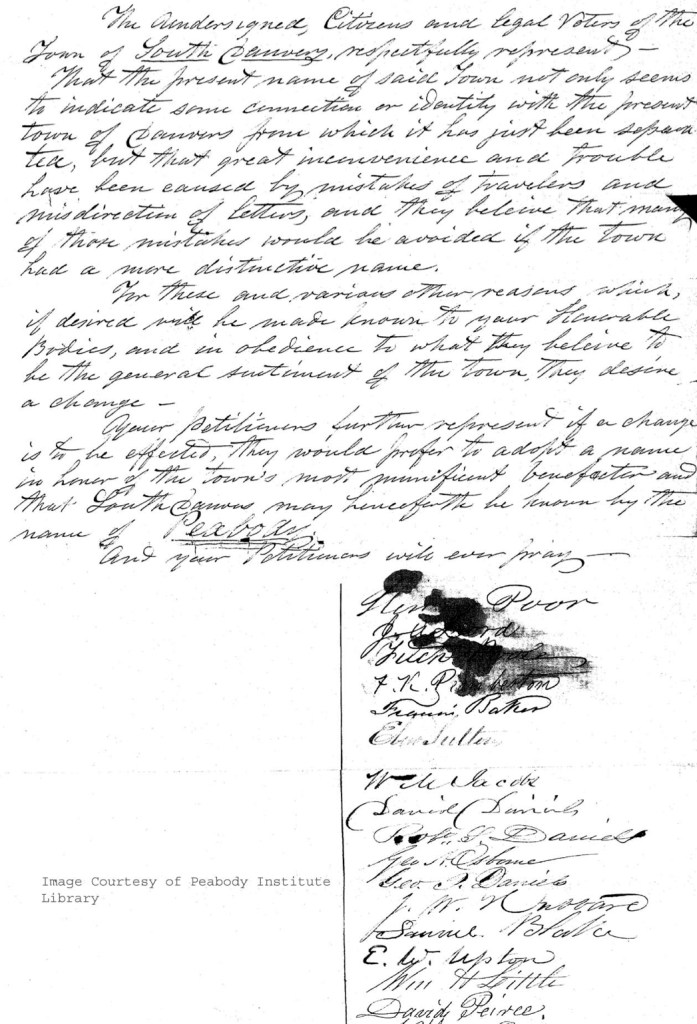 The Undersigned, Citizens and legal Voters of the
Town of South Danvers, respectfully represent,—
That the present name of said Town not only seems
to indicate some connection or identity with the present
town of Danvers from which it has just been separa
ted, but that great inconvenience and trouble
have been caused by mistakes of travelers and
misdirection of letters, and they beleive that many
of those mistakes would be avoided if the town
had a more distinctive name.
For these and various other reasons which,
if desired will be made known to your Honorable
Bodies, and in obedience to what they beleive to
be the general sentiment of the town, they desire
a change —
Your Petitioners further represent if a change
is to be effected, they would prefer to adopt a name
in honor of the town's most munificent benefactor and
that South Danvers may henceforth be known by the
name of Peabody.
And your Petitioners will ever pray —
Poor
Fitch
F. K.
Francis Baker
Eben Sutton
Wm Jacobs
David Daniels
Robt. S. Daniels
Geo. Osborne
Geo. Daniels
J. W.
Samuel Blake
E. W. Upton
Wm H Little
David Peirce.
Image Courtesy of Peabody Institute
Library